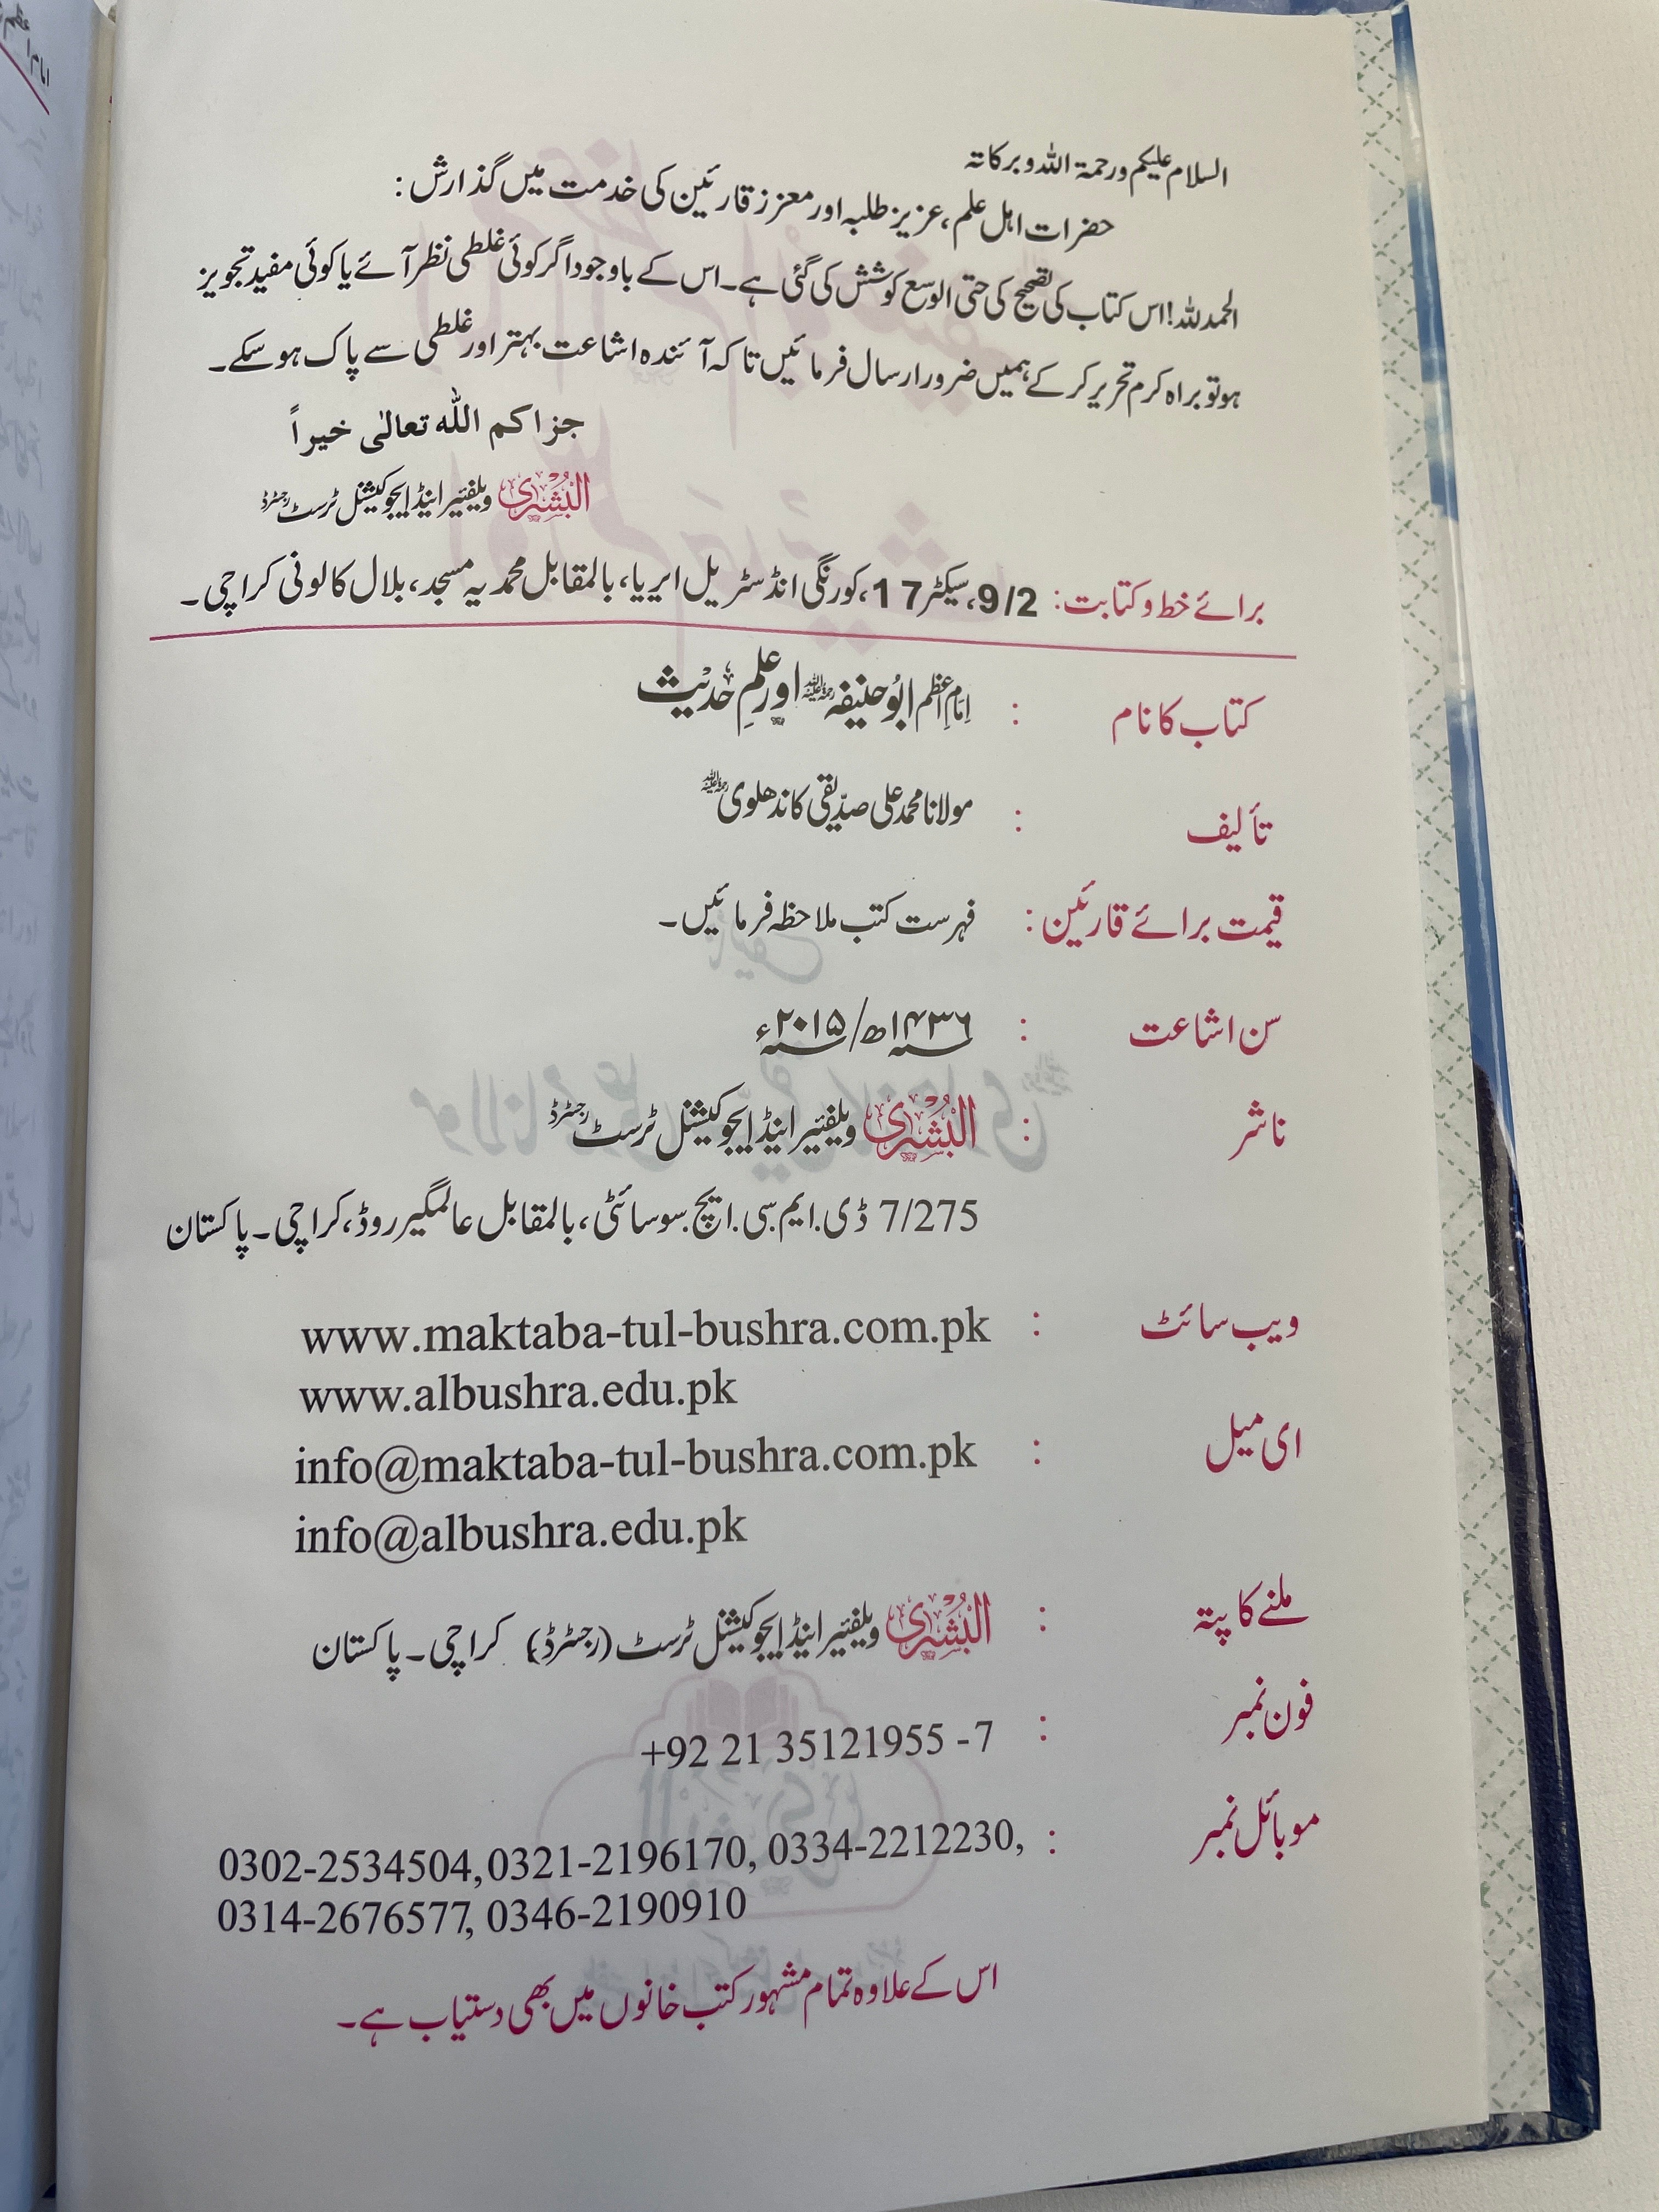 السلام علیکم ورحمۃ اللہ وبرکاتہ
حضرات اہل علم، عزیز طلبہ اور معزز قارئین کی خدمت میں گذارش:
الحمدللہ! اس کتاب کی تصحیح کی حتی الوسع کوشش کی گئی ہے۔ اس کے باوجود اگر کوئی غلطی نظر آئے یا کوئی مفید تجویز
ہو تو براہ کرم تحریر کر کے ہمیں ضرور ارسال فرمائیں تاکہ آئندہ اشاعت بہتر اور غلطی سے پاک ہو سکے۔
جزاکم اللّٰه تعالٰی خیراً
البُشریٰ ویلفئیر اینڈ ایجوکیشنل ٹرسٹ رجسٹرڈ
برائے خط و کتابت: 9/2، سیکٹر 17، کورنگی انڈسٹریل ایریا، بالمقابل محمدیہ مسجد، بلال کالونی کراچی۔
کتاب کا نام : اِمَامِ اعظم ابُو حنیفہ رحمۃ اللہ علیہ اور علمِ حدیث
تألیف : مولانا محمد علی صدّیقی کاندھلوی رحمۃ اللہ علیہ
قیمت برائے قارئین : فہرست کتب ملاحظہ فرمائیں۔
سن اشاعت : ۱۴۳۶ھ/ ۲۰۱۵ء
ناشر : البُشریٰ ویلفئیر اینڈ ایجوکیشنل ٹرسٹ رجسٹرڈ
7/275 ڈی.ایم.سی.ایچ.سوسائٹی، بالمقابل عالمگیر روڈ، کراچی۔ پاکستان
ویب سائٹ : www.maktaba-tul-bushra.com.pk
www.albushra.edu.pk
ای میل : info@maktaba-tul-bushra.com.pk
info@albushra.edu.pk
ملنے کا پتہ : البُشریٰ ویلفئیر اینڈ ایجوکیشنل ٹرسٹ (رجسٹرڈ) کراچی۔ پاکستان
فون نمبر : +92 21 35121955 -7
موبائل نمبر : 0302-2534504, 0321-2196170, 0334-2212230,
0314-2676577, 0346-2190910
اس کے علاوہ تمام مشہور کتب خانوں میں بھی دستیاب ہے۔